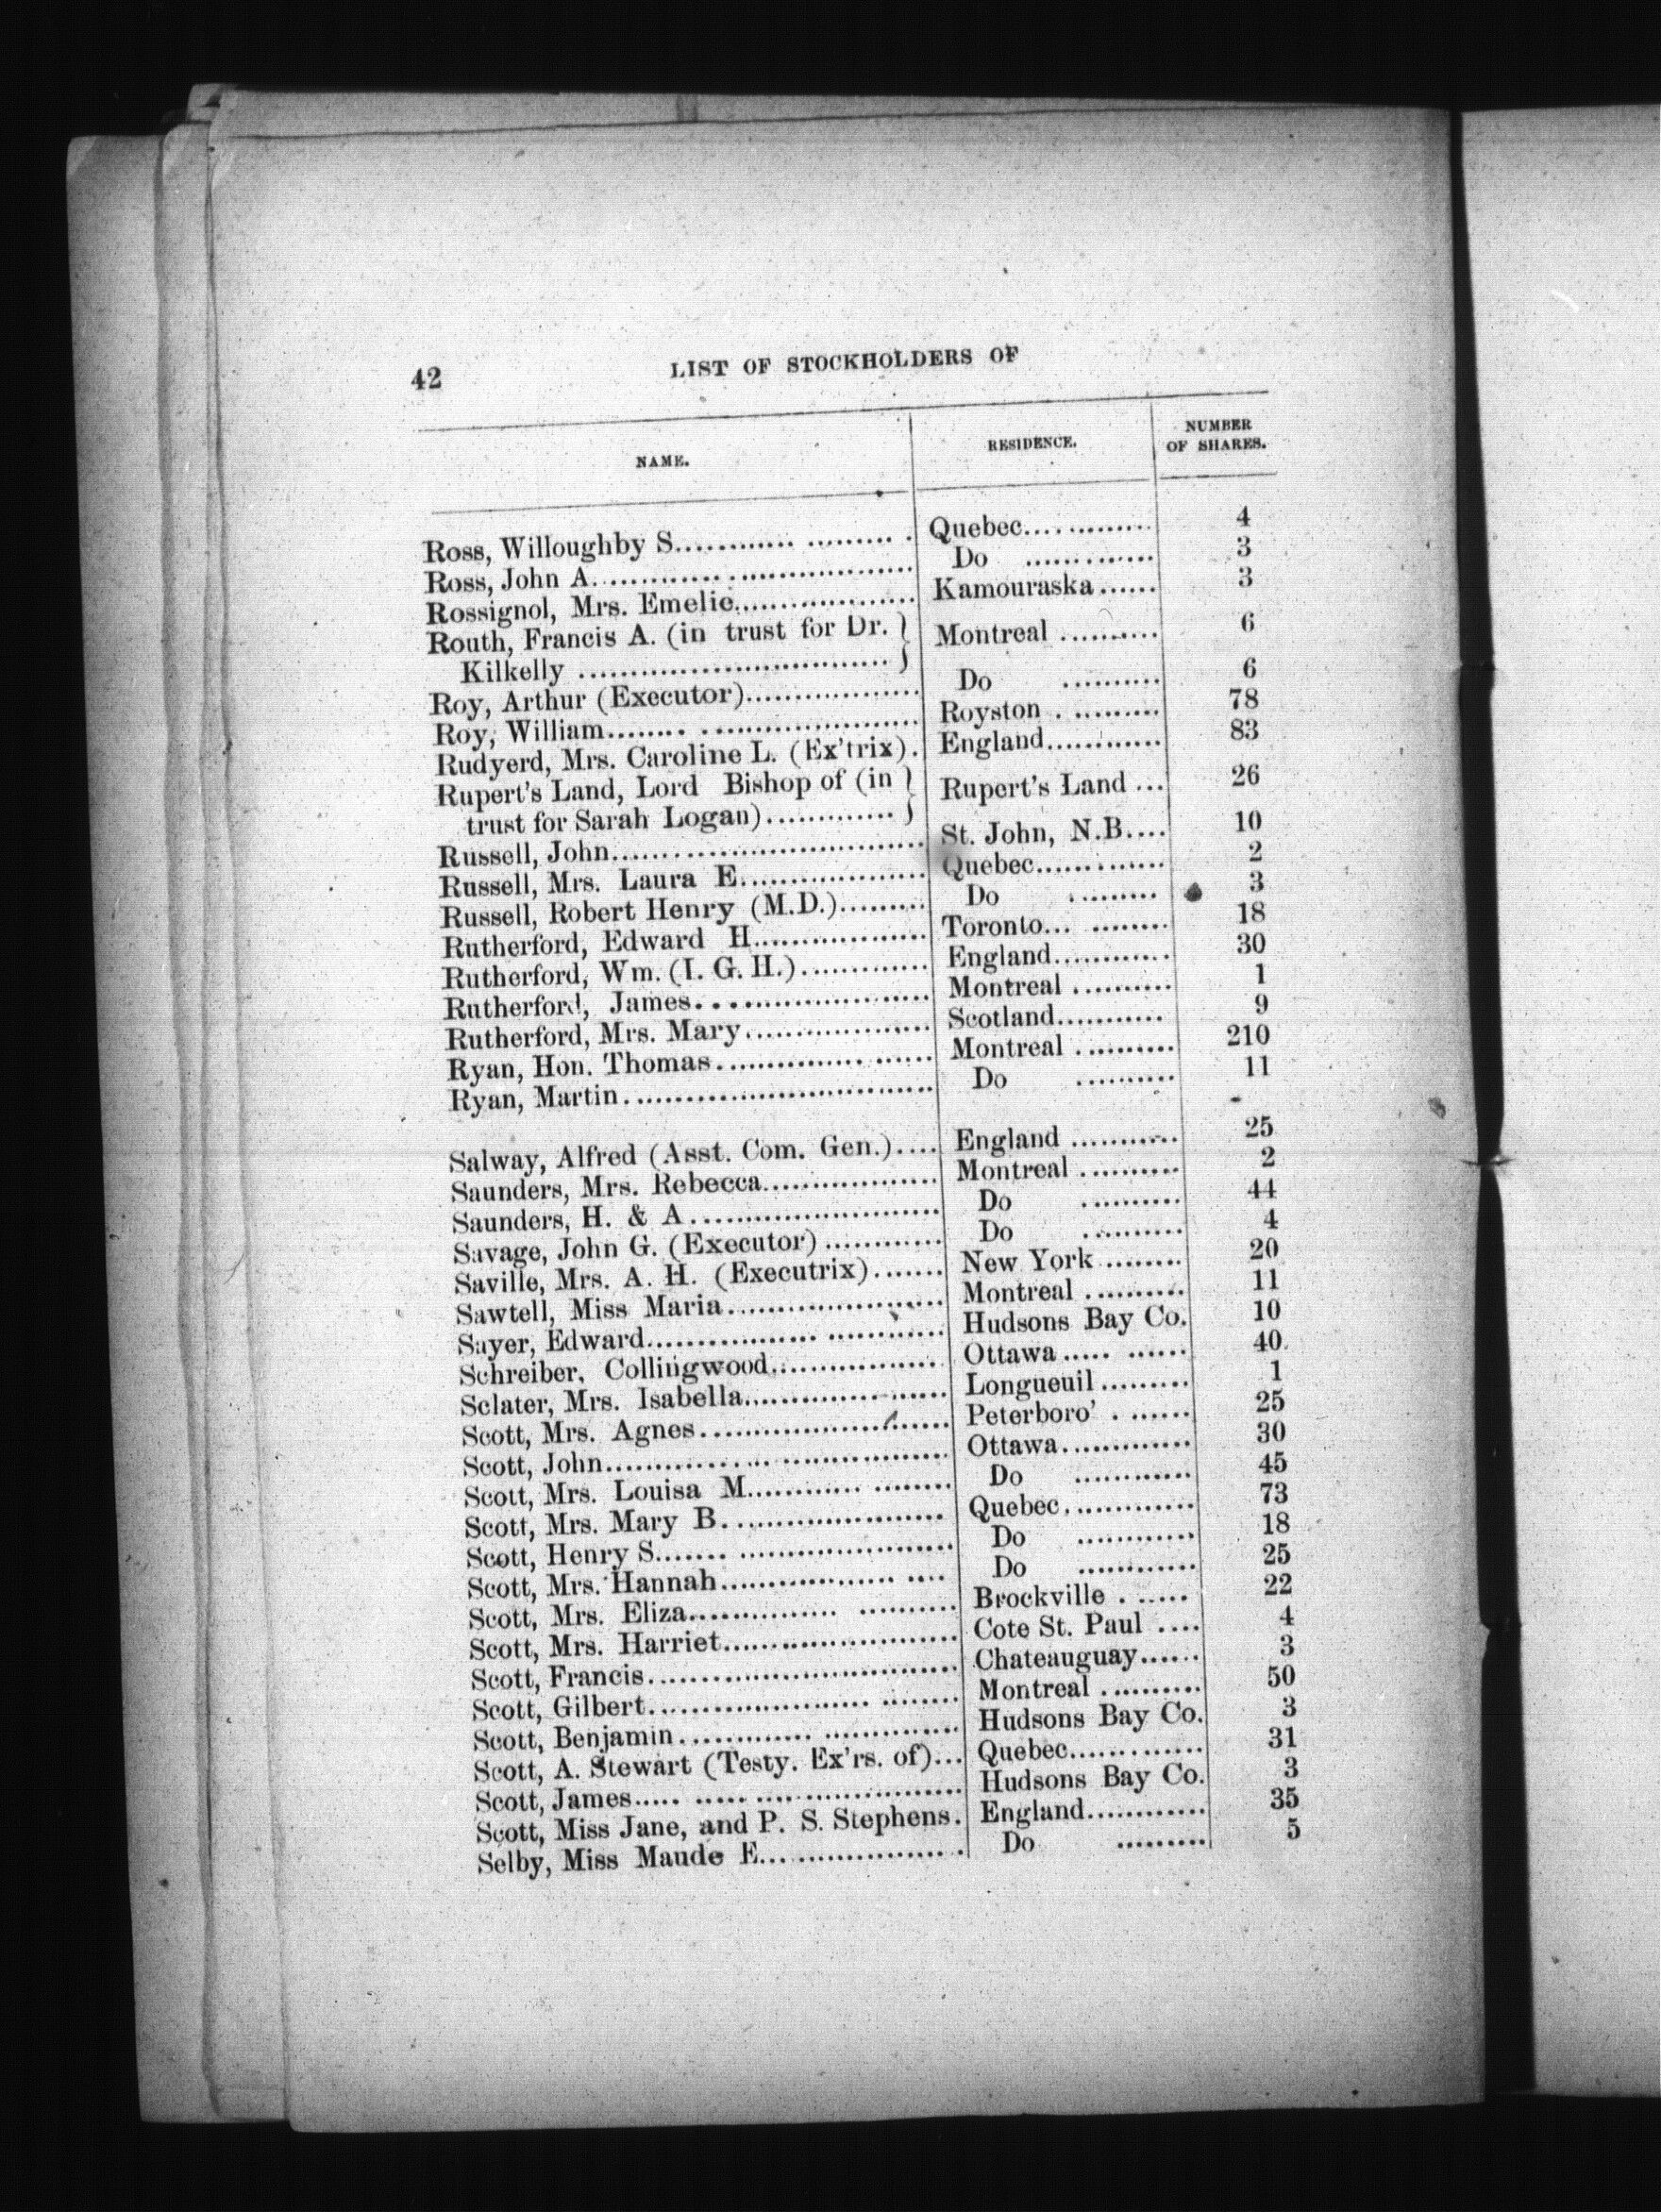 42 LIST OF STOCKHOLDERS OF
NAME. RESIDENCE. NUMBER OF SHARES.
Ross, Willoughby S. Quebec 4
Ross, John A. Do 3
Rossignol, Mrs. Emelie Kamouraska 3
Routh, Francis A. (in trust for Dr. Montreal 6
Kilkelly
Roy, Arthur (Executor) Do 6
Roy, William Royston 78
Rudyerd, Mrs. Caroline L. (Ex'trix). England 83
Rupert's Land, Lord Bishop of (in Rupert's Land 26
trust for Sarah Logan)
Russell, John St. John, N.B. 10
Russell, Mrs. Laura E. Quebec 2
Russell, Robert Henry (M.D.) Do 3
Rutherford, Edward H. Toronto 18
Rutherford, Wm. (I. G. H.) England 30
Rutherford, James Montreal 1
Rutherford, Mrs. Mary Scotland 9
Ryan, Hon. Thomas Montreal 210
Ryan, Martin Do 11
Salway, Alfred (Asst. Com. Gen.) England 25
Saunders, Mrs. Rebecca Montreal 2
Saunders, H. & A. Do 44
Savage, John G. (Executor) Do 4
Saville, Mrs. A. H. (Executrix) New York 20
Sawtell, Miss Maria Montreal 11
Sayer, Edward Hudsons Bay Co. 10
Schreiber, Collingwood Ottawa 40
Sclater, Mrs. Isabella Longueuil 1
Scott, Mrs. Agnes Peterboro' 25
Scott, John Ottawa 30
Scott, Mrs. Louisa M. Do 45
Scott, Mrs. Mary B. Quebec 73
Scott, Henry S. Do 18
Scott, Mrs. Hannah Do 25
Scott, Mrs. Eliza Brockville 22
Scott, Mrs. Harriet Cote St. Paul 4
Scott, Francis Chateauguay 3
Scott, Gilbert Montreal 50
Scott, Benjamin Hudsons Bay Co. 3
Scott, A. Stewart (Testy. Ex'rs. of) Quebec 31
Scott, James Hudsons Bay Co. 3
Scott, Miss Jane, and P. S. Stephens. England 35
Selby, Miss Maude E. Do 5